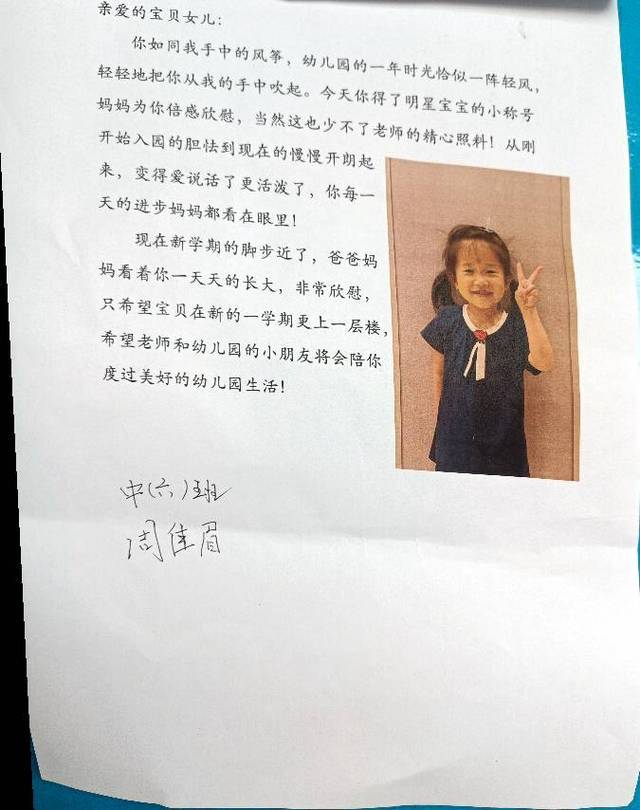 亲爱的宝贝女儿：
你如同我手中的风筝，幼儿园的一年时光恰似一阵轻风，
轻轻地把你从我的手中吹起。今天你得了明星宝宝的小称号
妈妈为你倍感欣慰，当然这也少不了老师的精心照料！从刚
开始入园的胆怯到现在的慢慢开朗起
来，变得爱说话了更活泼了，你每一
天的进步妈妈都看在眼里！
现在新学期的脚步近了，爸爸妈
妈看着你一天天的长大，非常欣慰，
只希望宝贝在新的一学期更上一层楼，
希望老师和幼儿园的小朋友将会陪你
度过美好的幼儿园生活！
中(六)班
周佳眉